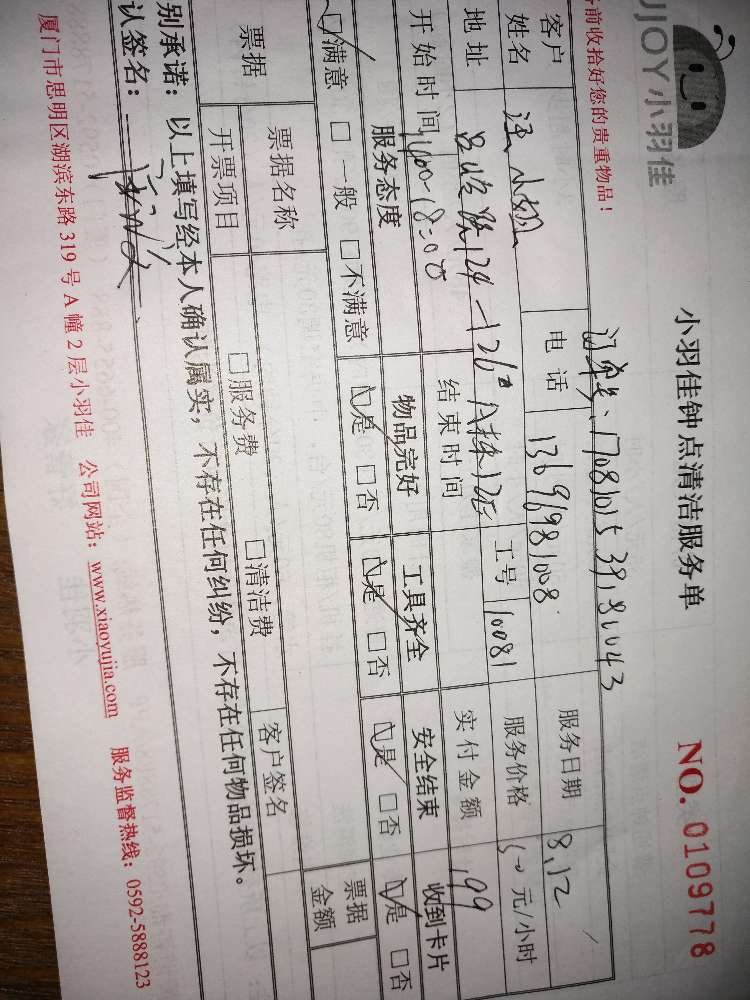 UJOY小羽佳
前收拾好您的贵重物品!
小羽佳钟点清洁服务单
NO. 0109778
客户姓名 电话 13696981008 服务日期 8.12
地址 工号 10081 服务价格 元/小时
开始时间 结束时间 实付金额 199
服务态度 物品完好 工具齐全 安全结束 收到卡片
☑满意 □一般 □不满意 ☑是 □否 ☑是 □否 ☑是 □否 ☑是 □否
票据 票据名称 客户签名 票据金额
开票项目 □服务费 □清洁费
别承诺：以上填写经本人确认属实，不存在任何纠纷，不存在任何物品损坏。
认签名：
厦门市思明区湖滨东路 319 号 A 幢 2 层小羽佳 公司网站：www.xiaoyujia.com 服务监督热线：0592-5888123